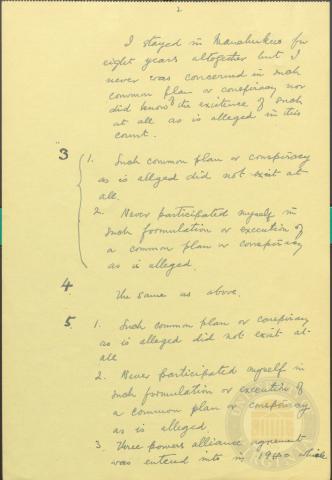 2
I stayed in Manchukuo for
eight years altogether but I
never was concerned in such
common plan or conspiracy nor
did know the existence of such
at all as is alleged in this
count.
3 1. Such common plan or conspiracy
as is alleged did not exist at-
all.
2. Never participated myself in
such formulation or execution of
a common plan or conspiracy
as is alleged.
4 The same as above.
5. 1. Such common plan or conspiracy
as is alleged did not exist at-
all
2. Never participated myself in
such formulation or execution of
a common plan or conspiracy
as is alleged.
3. Three powers alliance agreement
was entered into in 1940 while